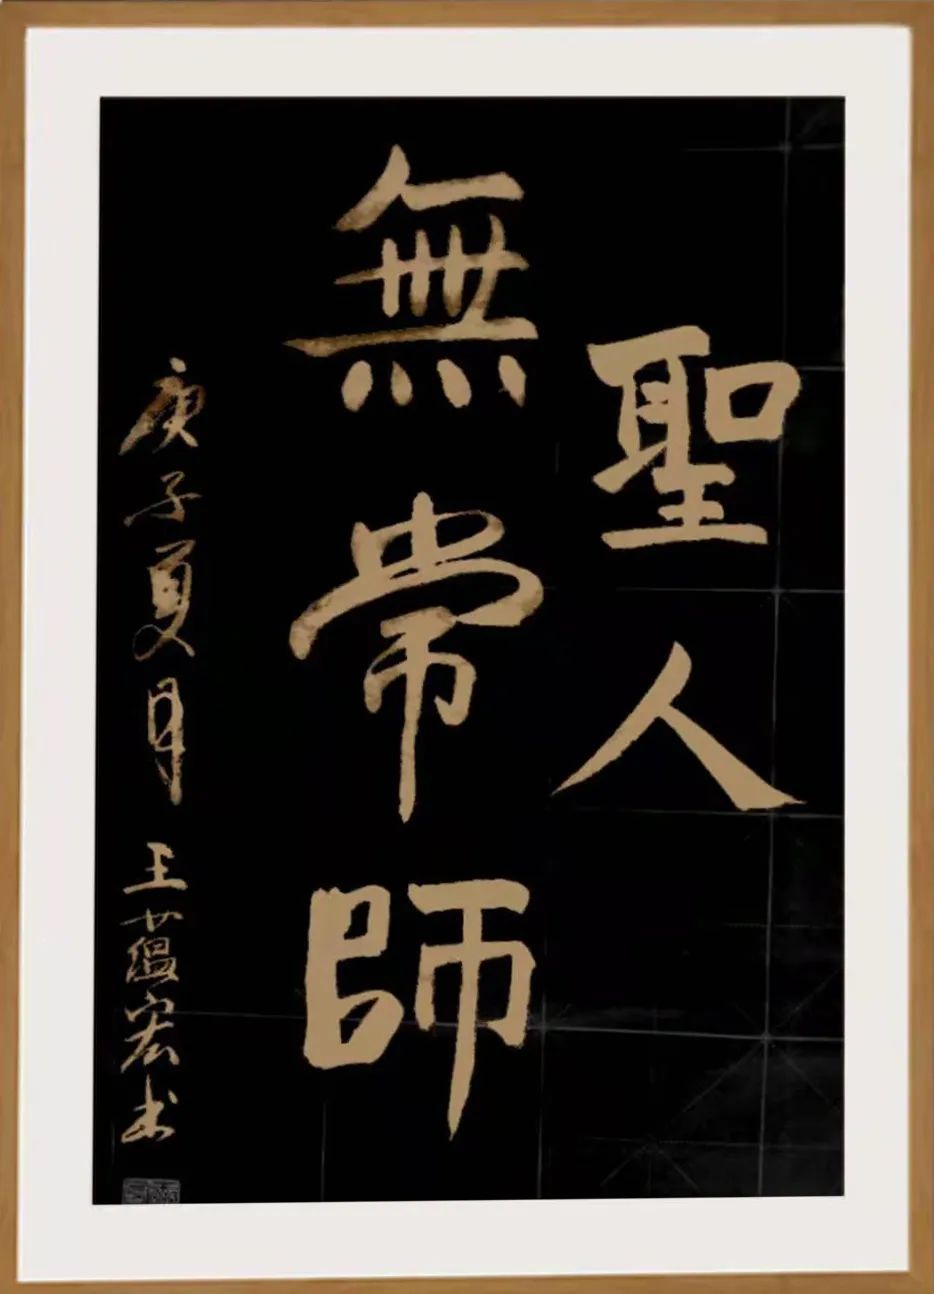 聖人
無常師
庚子夏月 王蘊宏书